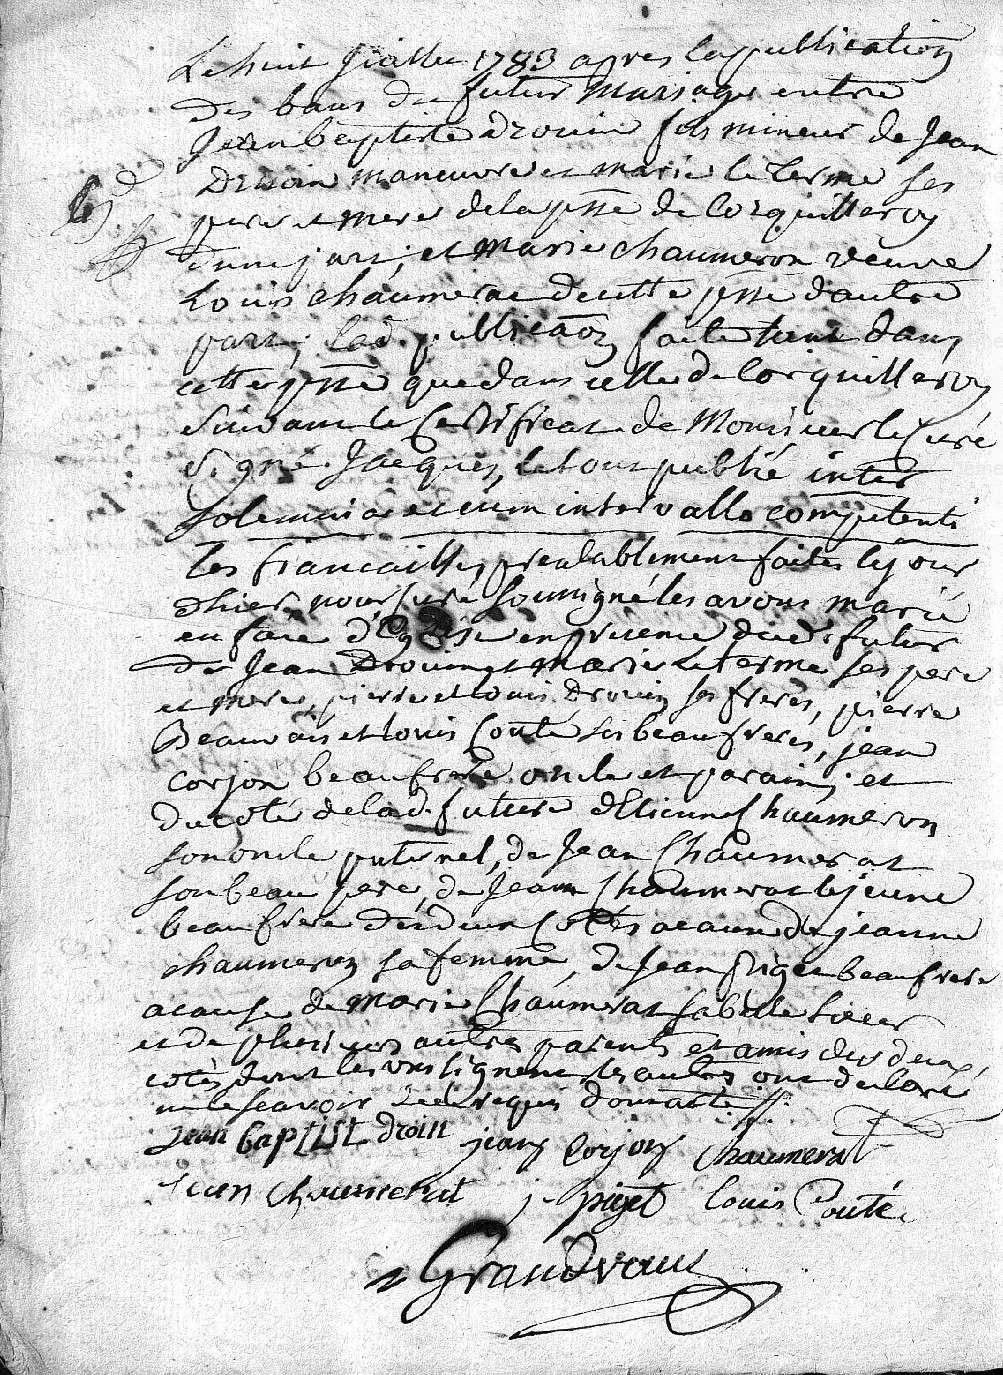 Le huit Juillet 1783 apres la publication
des bans de futur Mariage entre
Jean baptiste drouin fils mineur de Jean
Drouin manœuvre et marie le terme ses
pere et mere de la psse de Corquilleroy
d'une part, et Marie chaumeron veuve
Louis chaumerat de cette psse d'autre
part, lad. publicaõn faite tant dans
cette psse que dans celle de Corquilleroy
suivant le Certificat de Monsieur le Curé
signé Jacques, le tout publié inter
solemnia et cum intervallo competenti
les fiancailles prealablement faites le jour
d'hier, nous Curé soussigné les avons marié
en face d'Eglise en presence dud. futur
de Jean Drouin et marie Leterme ses pere
et mere, pierre et louis Drouin ses freres, pierre
Beauvais et louis Couté ses beaufreres, jean
corjon beaufrere oncle et parain, et
du coté de lad. future d'Etienne Chaumeron
son oncle paternel, de Jean Chaumerat
son beau pere, de Jean Chaumerat le jeune
beaufrere des deux Cotés a cause de jeanne
chaumeron sa femme, de Jean piget beaufrere
a cause de Marie Chaumerat sa belle soeur
et de plusieurs autres parents et amis des deux
cotés dont les uns signent les autres ont declaré
ne le scavoir de ce requis dont acte //.
jean baptist droin jean Corjon Chaumerat
jean Chaumerat j piget louis Couté
Grandvaux